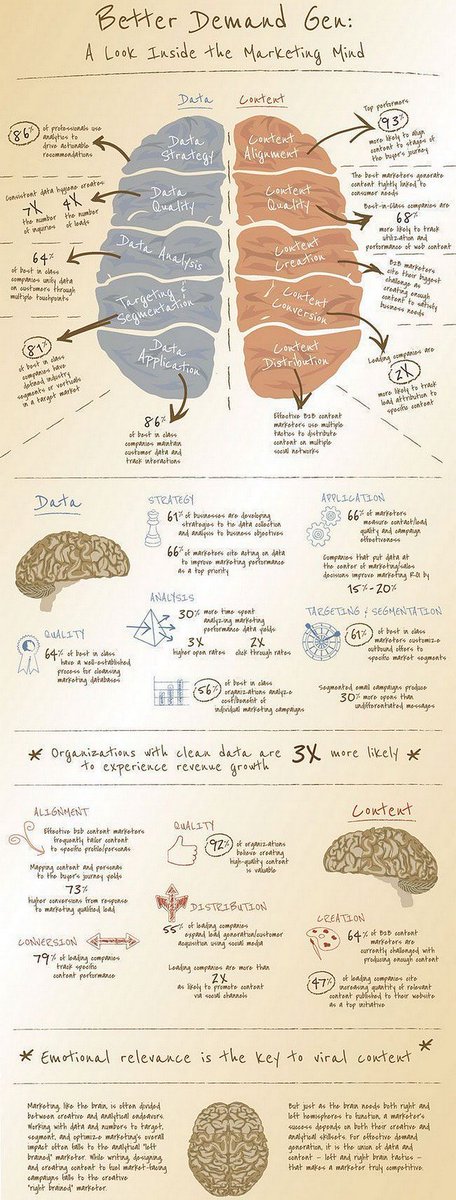 Better Demand Gen:
A Look Inside the Marketing Mind
Data
Content
86%
of professionals use
analytics to
drive actionable
recommendations
Data
Strategy
Content
Alignment
Top performers
93%
more likely to align
content to stages of
the buyer's journey
Consistent data hygiene creates
7X
the number
of inquiries
4X
the number
of leads
Data
Quality
Content
Quality
The best marketers generate
content tightly linked to
consumer needs
64%
of best in class
companies unify data
on customers through
multiple touchpoints
Data Analysis
Content
Creation
Best-in-class companies are
68%
more likely to track
utilization and
performance of web content
B2B marketers
cite their biggest
challenge as
creating enough
content to satisfy
business needs
81%
of best in class
companies have
defined industry
segments or verticals
in a target market
Targeting &
Segmentation
Content
Conversion
Leading companies are
2X
more likely to track
lead attribution to
specific content
Data
Application
Content
Distribution
86%
of best in class
companies maintain
customer data and
track interactions
Effective B2B content
marketers use multiple
tactics to distribute
content on multiple
social networks
Data
STRATEGY
61% of businesses are developing
strategies to tie data collection
and analysis to business objectives
66% of marketers cite acting on data
to improve marketing performance
as a top priority
APPLICATION
66% of marketers
measure contact/lead
quality and campaign
effectiveness
Companies that put data at
the center of marketing/sales
decisions improve marketing ROI by
15%-20%
QUALITY
64% of best in class
have a well-established
process for cleansing
marketing databases
ANALYSIS
30% more time spent
analyzing marketing
performance data yields
3X
higher open rates
2X
click through rates
56%
of best in class
organizations analyze
cost/benefit of
individual marketing campaigns
TARGETING & SEGMENTATION
61%
of best in class
marketers customize
outbound offers to
specific market segments
Segmented email campaigns produce
30% more opens than
undifferentiated messages
* Organizations with clean data are 3X more likely *
to experience revenue growth
ALIGNMENT
Effective B2B content marketers
frequently tailor content
to specific profile/personas
Mapping content and personas
to the buyer's journey yields
73%
higher conversions from response
to marketing qualified lead
QUALITY
92%
of organizations
believe creating
high-quality content
is valuable
Content
CONVERSION
79% of leading companies
track specific
content performance
DISTRIBUTION
55% of leading companies
expand lead generation/customer
acquisition using social media
Leading companies are more than
2X
as likely to promote content
via social channels
CREATION
64% of B2B content
marketers are
currently challenged with
producing enough content
47%
of leading companies cite
increasing quantity of relevant
content published to their website
as a top initiative
* Emotional relevance is the key to viral content *
Marketing, like the brain, is often divided
between creative and analytical endeavors.
Working with data and numbers to target,
segment, and optimize marketing's overall
impact often falls to the analytical "left
brained" marketer. While writing, designing,
and creating content to fuel market-facing
campaigns falls to the creative
"right brained" marketer.
But just as the brain needs both right and
left hemispheres to function, a marketer's
success depends on both their creative and
analytical skillsets. For effective demand
generation, it is the union of data and
content – left and right brain tactics –
that makes a marketer truly competitive.